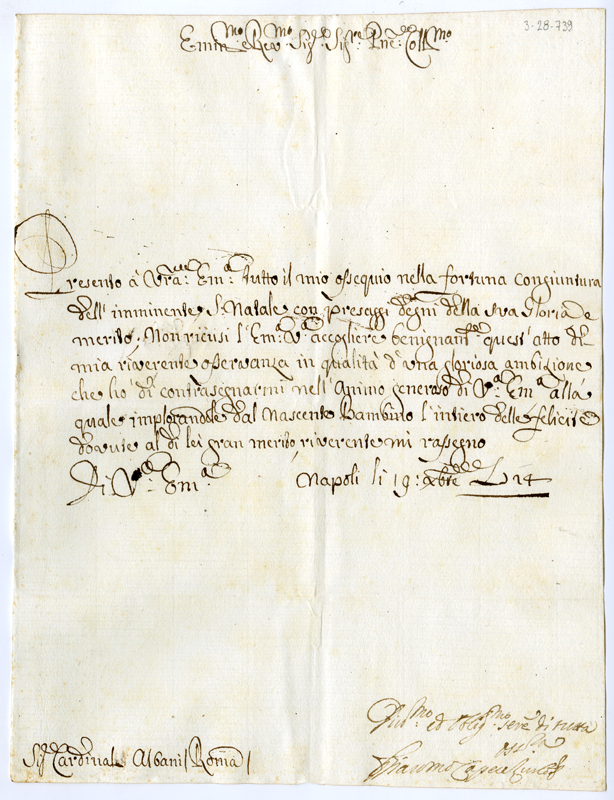 3-28-739
Emin.mo e Rev.mo Sig.re Sig.re Pne. Coll.mo
Presento à Vra. Em.a tutto il mio ossequio nella fortuna congiuntura
dell'imminente S. Natale con presaggi degni della sua Gloria e
merito. Non ricusi l'Em. V.a accogliere benignant.e quest'atto di
mia riverente osservanza in qualità d'una gloriosa ambizione
che ho di contrasegnarmi nell'Animo generoso di V.a Em.a alla
quale implorandole dal Nascente Bambino l'intiero delle felicità
dovute al di lei gran merito riverente mi rassegno
Di V.a Em.a Napoli li 19. Xbre 1714
Sig. Cardinal Albani / Roma /
Um.mo ed Obligmo. serv. di tutta
oss.a
Giacomo